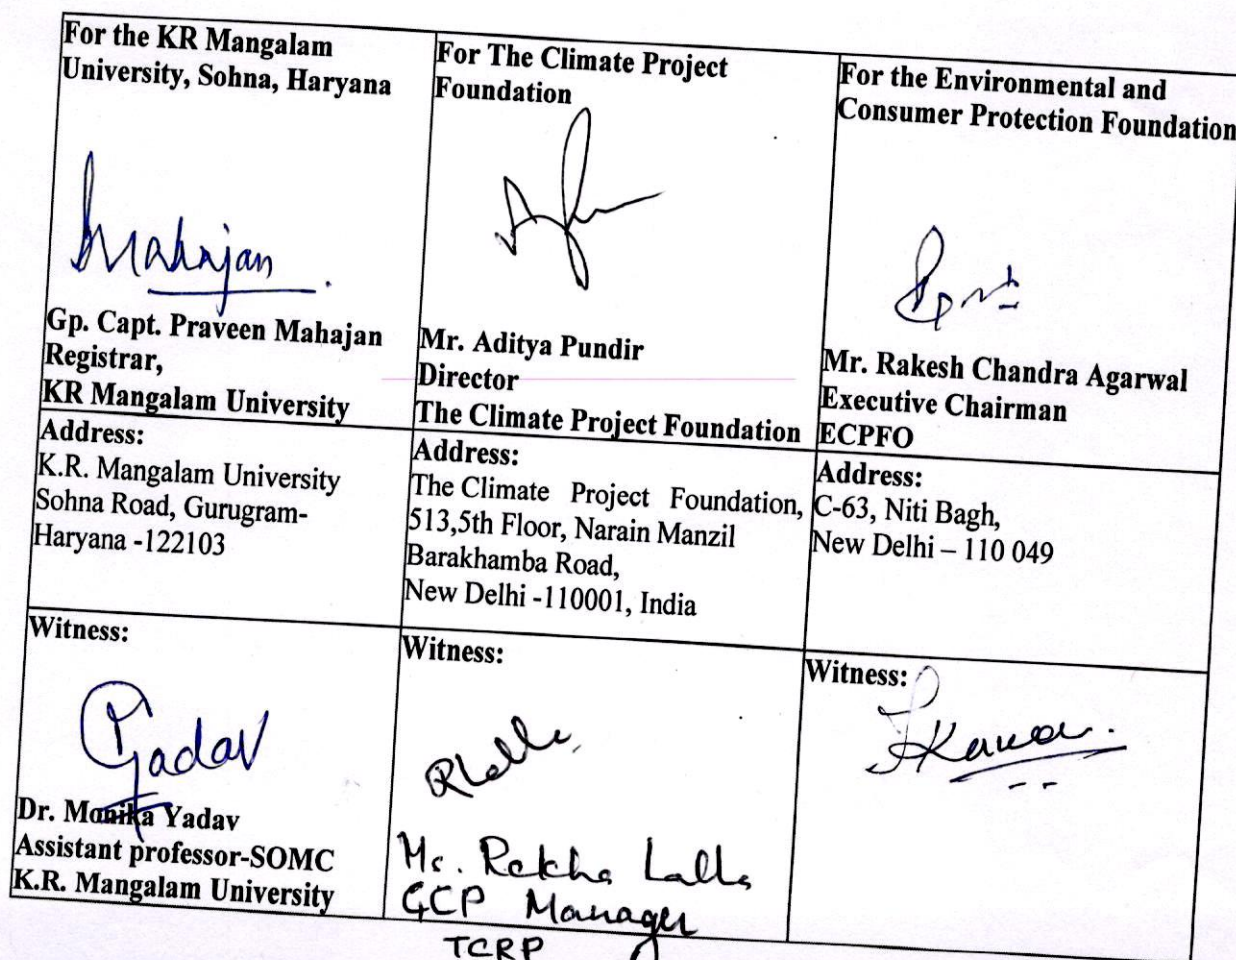 For the KR Mangalam
University, Sohna, Haryana
Mahajan
Gp. Capt. Praveen Mahajan
Registrar,
KR Mangalam University
For The Climate Project
Foundation
Mr. Aditya Pundir
Director
The Climate Project Foundation
For the Environmental and
Consumer Protection Foundation
Mr. Rakesh Chandra Agarwal
Executive Chairman
ECPFO
Address:
K.R. Mangalam University
Sohna Road, Gurugram-
Haryana -122103
Address:
The Climate Project Foundation,
513,5th Floor, Narain Manzil
Barakhamba Road,
New Delhi -110001, India
Address:
C-63, Niti Bagh,
New Delhi – 110 049
Witness:
Yadav
Dr. Monika Yadav
Assistant professor-SOMC
K.R. Mangalam University
Witness:
Ms. Rekha Lalla
GCP Manager
TCRP
Witness: